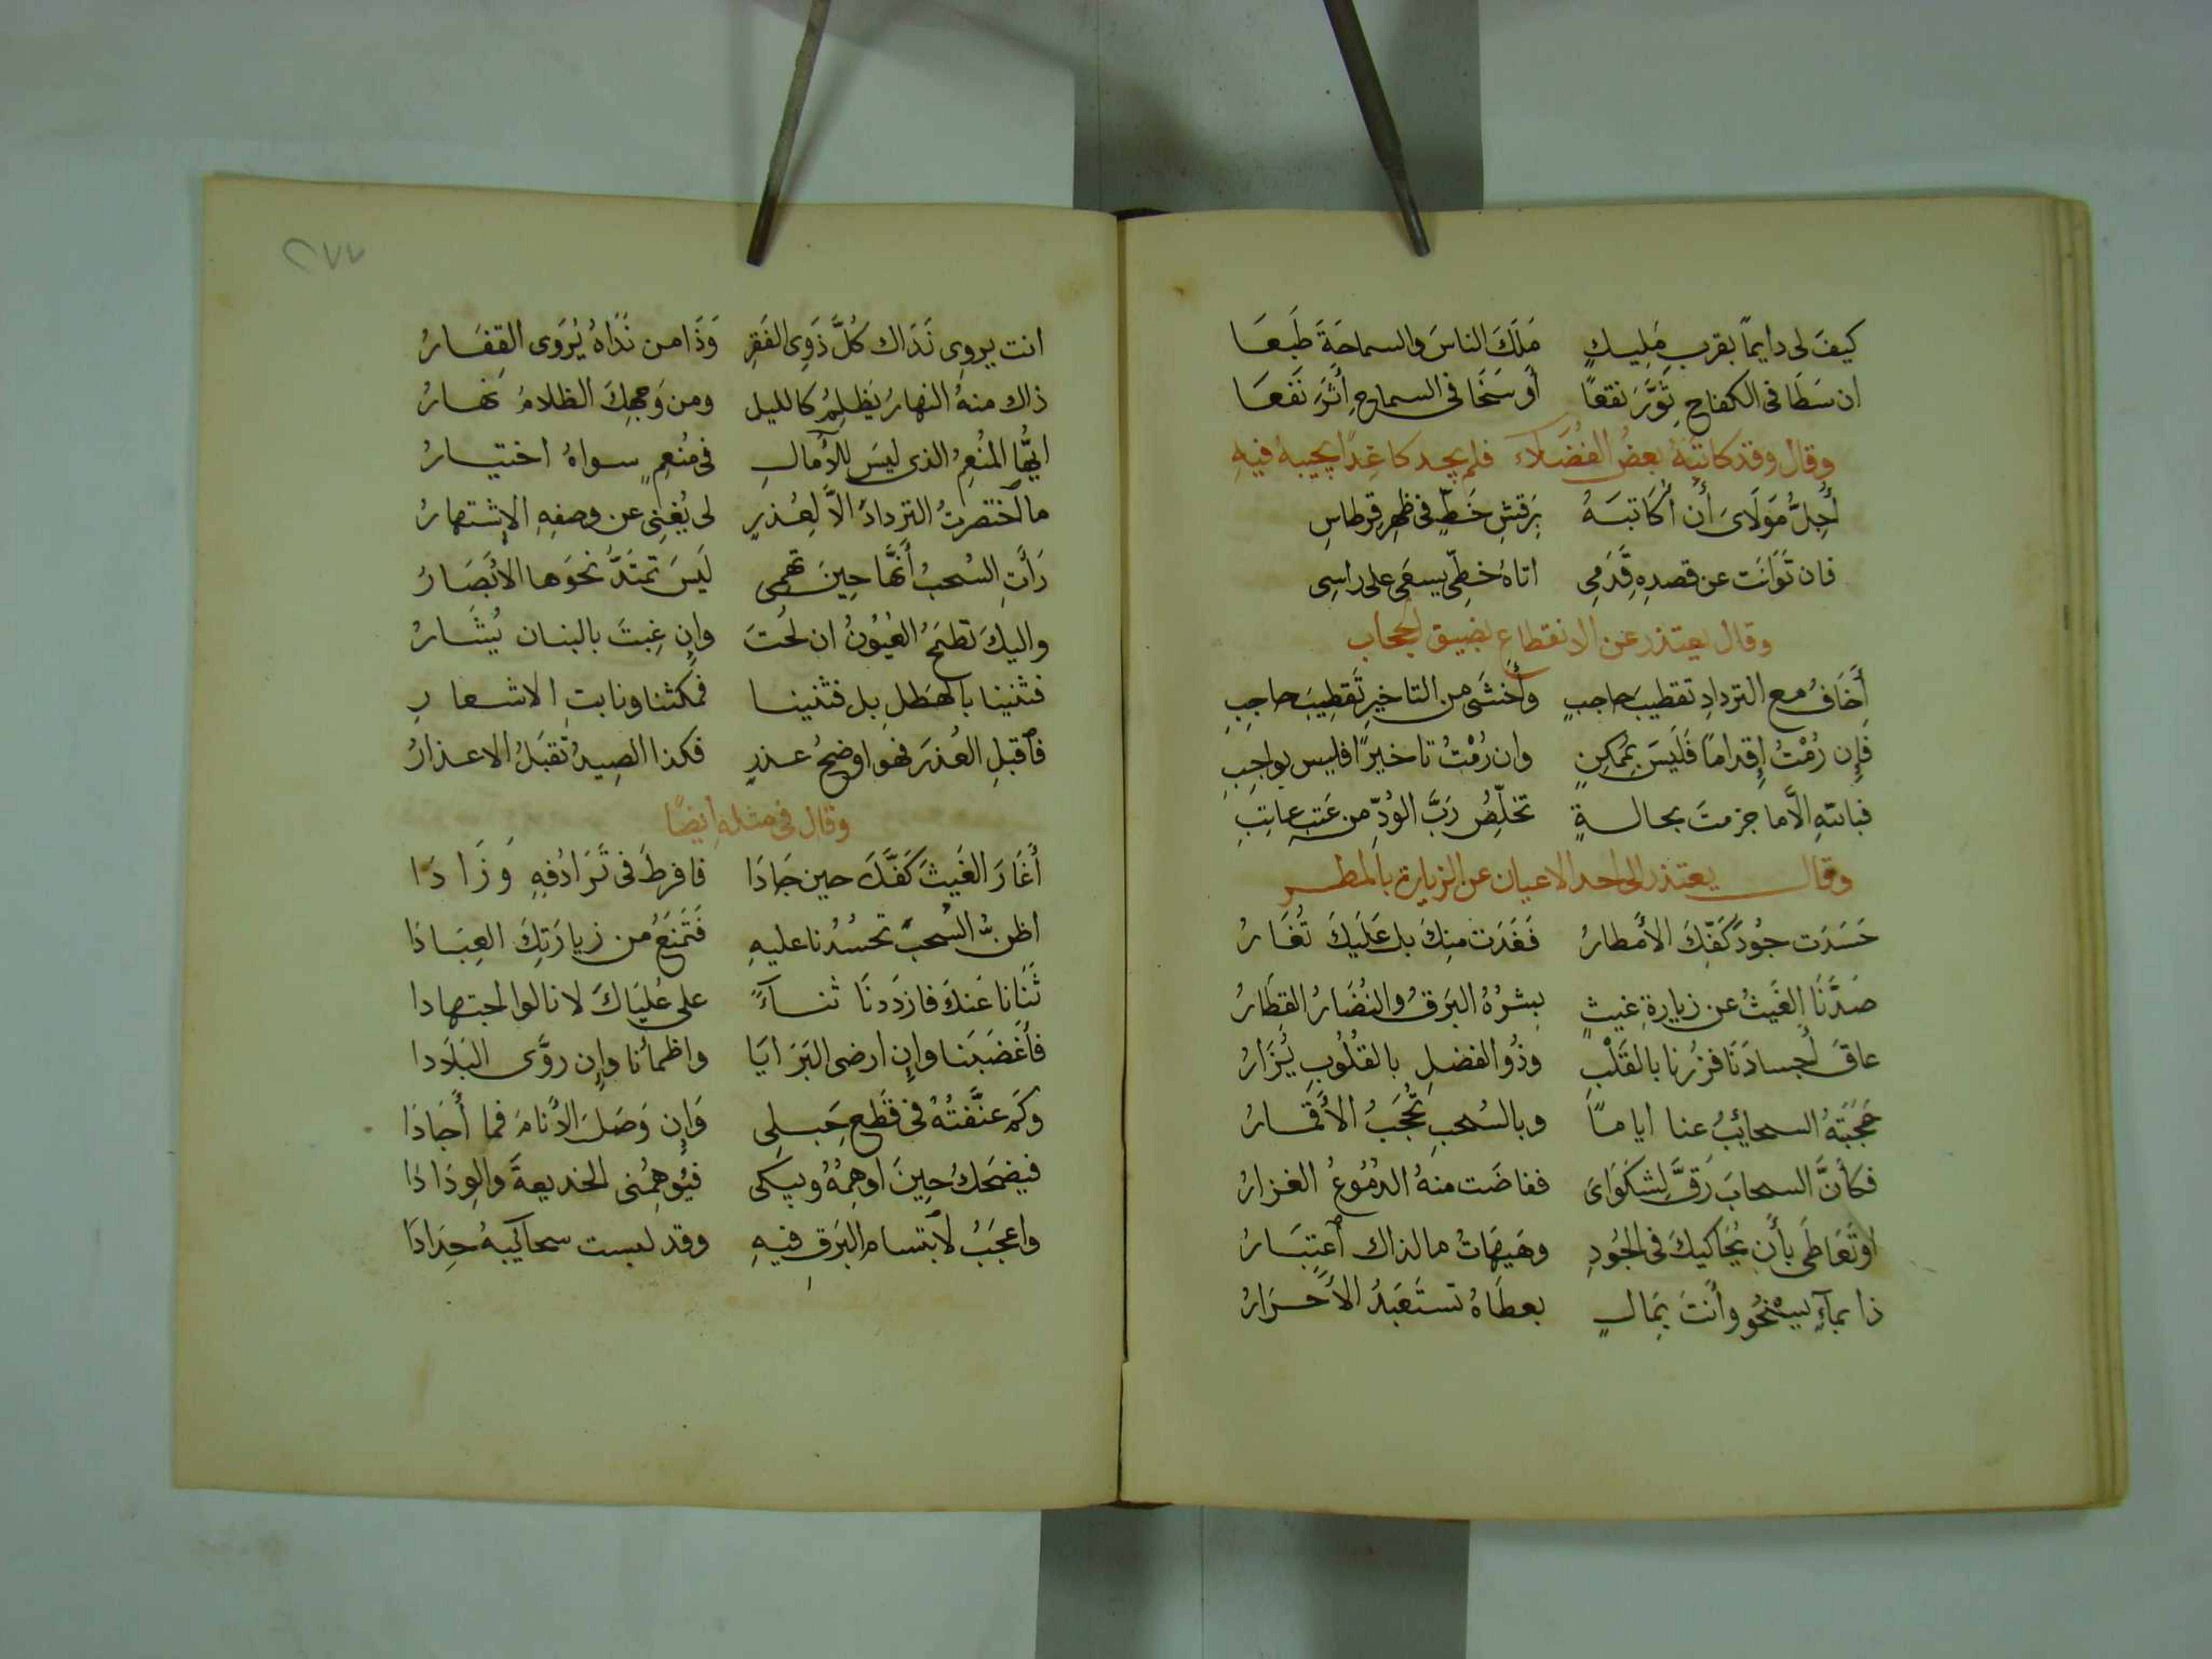 كيفَ لى دايمًا بقربِ مَلِيكٍ مَلَكَ الناسَ والسماحَةَ طَبعَا
ان سَطَا فى الكفاحِ ثَوَّرَ نقعًا أو سَخَا فى السماحِ أَثَّرَ نَفعَا
وقال وقد كاتبَهُ بعضُ الفُضَلاء فلم يجد كاغدًا يجيبهُ فيهِ
أُجِلُّ مَولَاىَ أَن أُكَاتبَهُ بَرَقشِ خَطٍّ فى ظهرِ قرطاسِ
فان تَوَانَت عن قصدِهِ قَدَمِى اتاهُ خطِّى يسعَى على راسِى
وقال يعتذر عن الانقطاع بضيق الحجاب
أَخَافُ مع التردادِ تقطيبَ حاجبٍ وأَخشَى من التاخيرِ تَقطِيبَ حاجِبِ
فَإِن رُمْتُ إِقدامًا فَلَيسَ بمُمكِنٍ وان رُمْتُ تاخيرًا فليس بواجِبِ
فباللهِ الَّا ما جزمتَ بحالةٍ تخلِّصُ رَبَّ الوُدِّ من عَتبِ عاتِبِ
وقال يعتذر الى احد الاعيان عن الزيارة بالمطر
حَسَدَت جُودَ كَفِّكَ الأَمطارُ فَغَدَت منكَ بل عَلَيكَ تُغَارُ
صَدَّنَا الغَيثُ عن زيارةِ غيثٍ بِشرُهُ البَرقُ والنُضَارُ القِطَارُ
عاقَ أَجسادَنَا فزُرنا بالقَلْبِ وذُو الفضلِ بالقُلُوبِ يُزَارُ
حَجَبَتهُ السحائبُ عنا اياماً وبالسُحبِ تُحجَبُ الأَقمَارُ
فكأَنَّ السحابَ رَقَّ لِشَكوَاىَ ففاضَت منهُ الدُمُوعُ الغزارُ
او تَعَاطَى بأَن يُحَاكيكَ فى الجُودِ وهَيهَاتُ ما لذاك اعتِبَارُ
ذا بمآءٍ يسخُو وأَنتَ بمَالٍ بعطَاهُ تستَعبَدُ الأَحرَارُ
٢٧٧
انت يروِى نَدَاك كُلَّ ذَوِى الفَقرِ وَذَا من نَدَاهُ يُروَى القِفَارُ
ذاك منهُ النهارُ يَظلِمُ كالليل ومن وَجهِكَ الظلامُ نهارُ
ايُّها المُنعِمُ الذى ليسَ للآمالِ فى مُنعِمٍ سواهُ اختيارُ
ما اختصرتُ التردادَ الَّا لِعُذرٍ لى يُغنِى عن وصفِهِ الإشتهارُ
رَأَتِ السُحبُ أَنَّها حِينَ تهمِى لَيسَ تمتَدُّ نحوَها الأَبصَارُ
واليكَ تطمَحُ العُيُونُ ان لُحتَ وإن غِبتَ بالبنان يُشَارُ
فثنينا بالهَطلِ بل فثنينا فمكثنا ونابتِ الاشعارِ
فاقبلِ العُذرَ فهو اوضحُ عذرٍ فكذا الصِيدُ تقبَلُ الاعذارُ
وقال فى مثله أيضًا
أَغَارَ الغَيثَ كَفُّكَ حين جَادَا فافرطَ فى تَرَادُفِهِ وَزَادَا
اظنُّ السُحبَ تحسُدُنا عليهِ فَتَمنَعُ من زيارَتِكَ العِبَادَا
ثَنَانا عَنكَ فازدَدنَا ثناءً على عُليَاكَ لا نالوا اجتهادا
فأَغضَبَنا وإن ارضى البَرَايَا واظمأَنا وإن روَّى البَلَادا
وكم عنَّفتُهُ فى قَطعِ حَبلِى وَإِن وَصَلَ الأَنامَ فما أَجَادَا
فيضحَكُ حِينَ اوهِمُهُ ويبكَى فيُوهِمُنى الخديعةَ والوِدَادَا
واعجَبُ لابتسامِ البَرقِ فيهِ وقد لبست سحائبهُ حِدَادَا